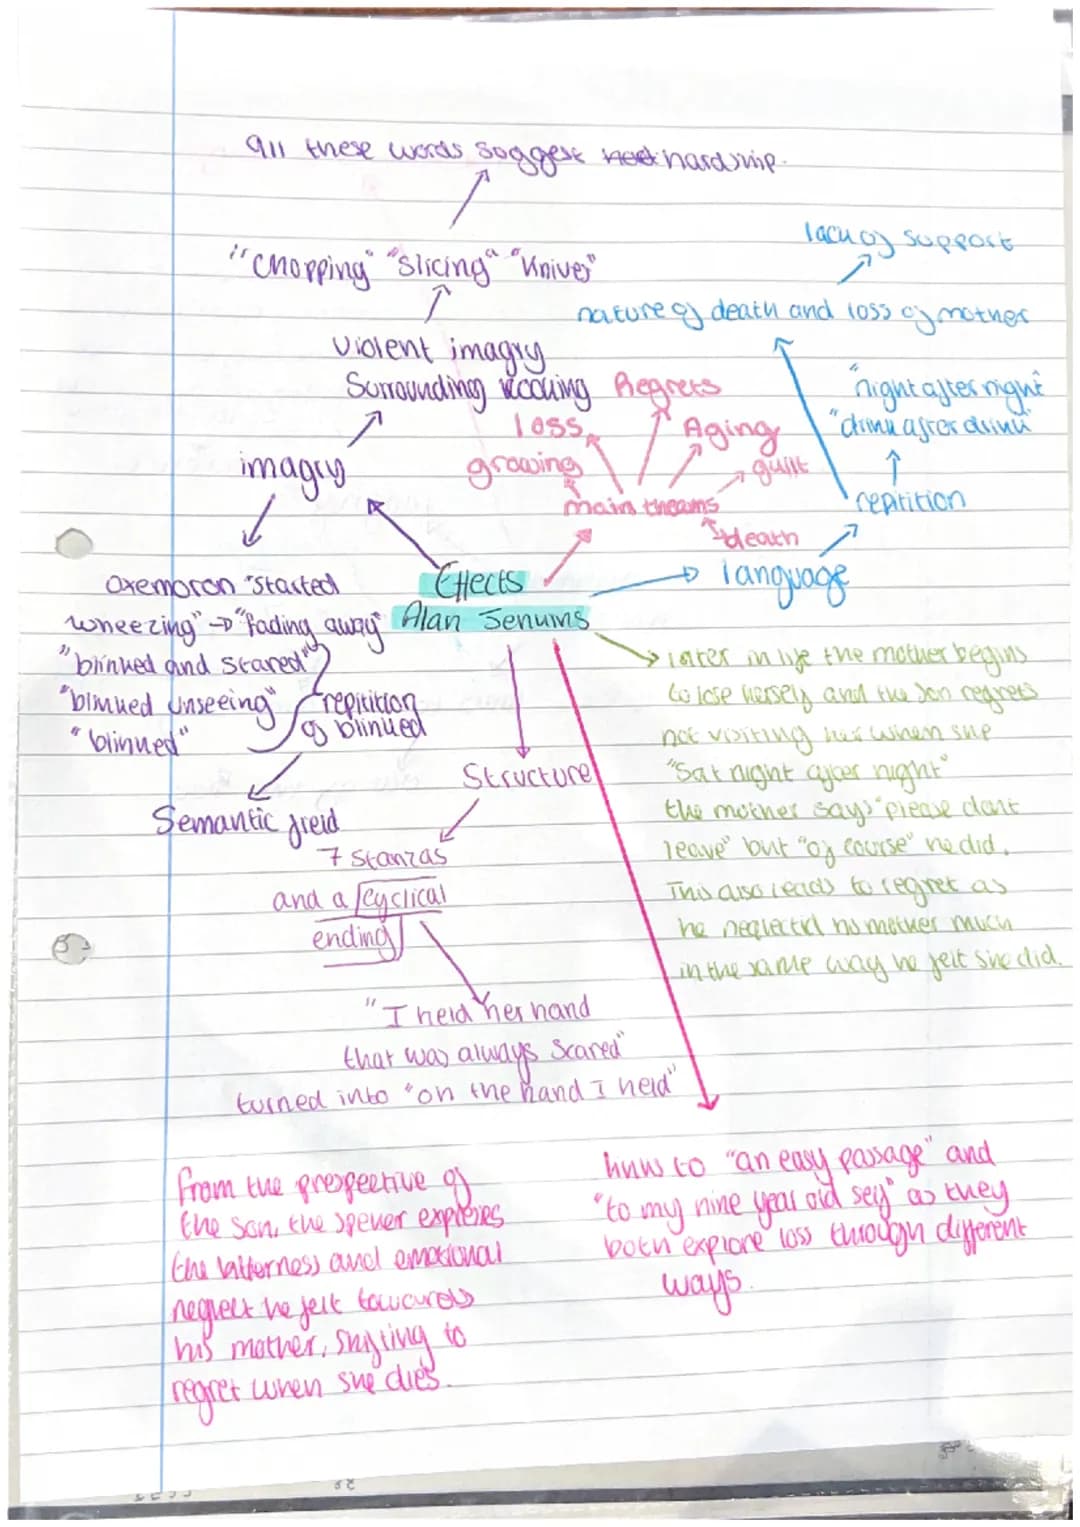 all these words soggest hardship.
"Chopping" "Slicing" "Knives"
Violent imagry
Surrounding cooking
imagry
lack of support
nature of death and loss of mother
"night after night"
"drink after drink"
repitition
language
Regrets
loss
Aging
growing
guilt
main theams
death
Effects
Alan Jenkins
oxemoron "started
wheezing" → "fading away"
"blinked and stared"
"blinked unseeing"
"blinked"
repitition
of blinked
Semantic feild
Structure
7 stanzas
and a cyclical
ending
"I held her hand
that was always scared"
turned into "on the hand I held"
later in life the mother begins
to lose herself and the son regrets
not visiting her when she
"Sat night after night"
the mother says "please dont
leave" but "of course" he did.
This also leads to regret as
he neglected his mother much
in the same way he felt she did.
from the prespective of
the son, the speker expreses
the bitterness and emotional
neglect he felt towards
his mother, shifting to
regret when she dies.
links to "an easy passage" and
"to my nine year old self" as they
both explore loss through different
ways.